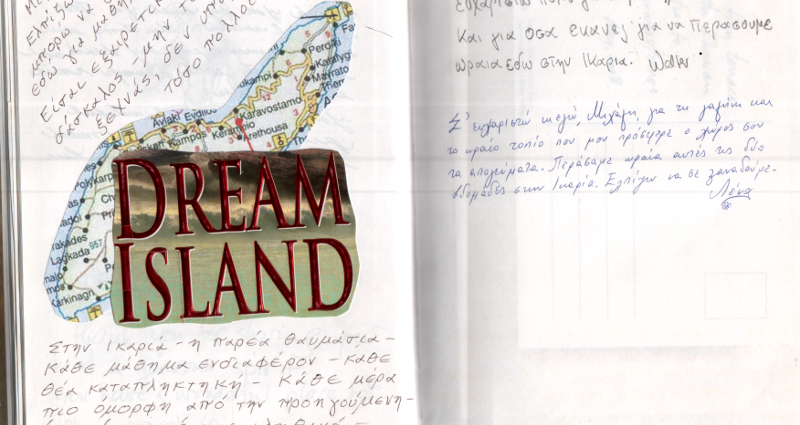 Ελπίζω
μπορώ να
εδώ για μαθη
Είσαι εξαιρετικ
δάσκαλος - μην το
ξεχνάς, δεν υπα
τόσο πολλο
Fa
Perdiki
Karatyg
Mavrato
Ther
kampi
Karavostamo
Avlaki
Evdilos
Kampos
Kerameio
Arethousa
Th
Polykarp
Ch
akades
957
Lagkada
Karkinagri
DREAM
ISLAND
Στην Ικαριά - η παρέα θαυμάσια -
Κάθε μάθημα ενδιαφέρον - κάθε
θέα καταπληκτηκή - Κάθε μέρα
πιο όμορφη από την προηγούμενη -
Και για όσα έκανες για να περάσουμε
ωραία εδώ στην Ικαρια. Walter
Σ' ευχαριστώ κι εγώ, Μιχάλη, για τη γαλήνη και
το ωραίο τοπίο που μου πρόσφερε ο χώρος σου
τα απογεύματα. Περάσαμε ωραία αυτές τις δύο
βδομάδες στην Ικαρία. Ελπίζω να σε ξαναδούμε.
Λένα